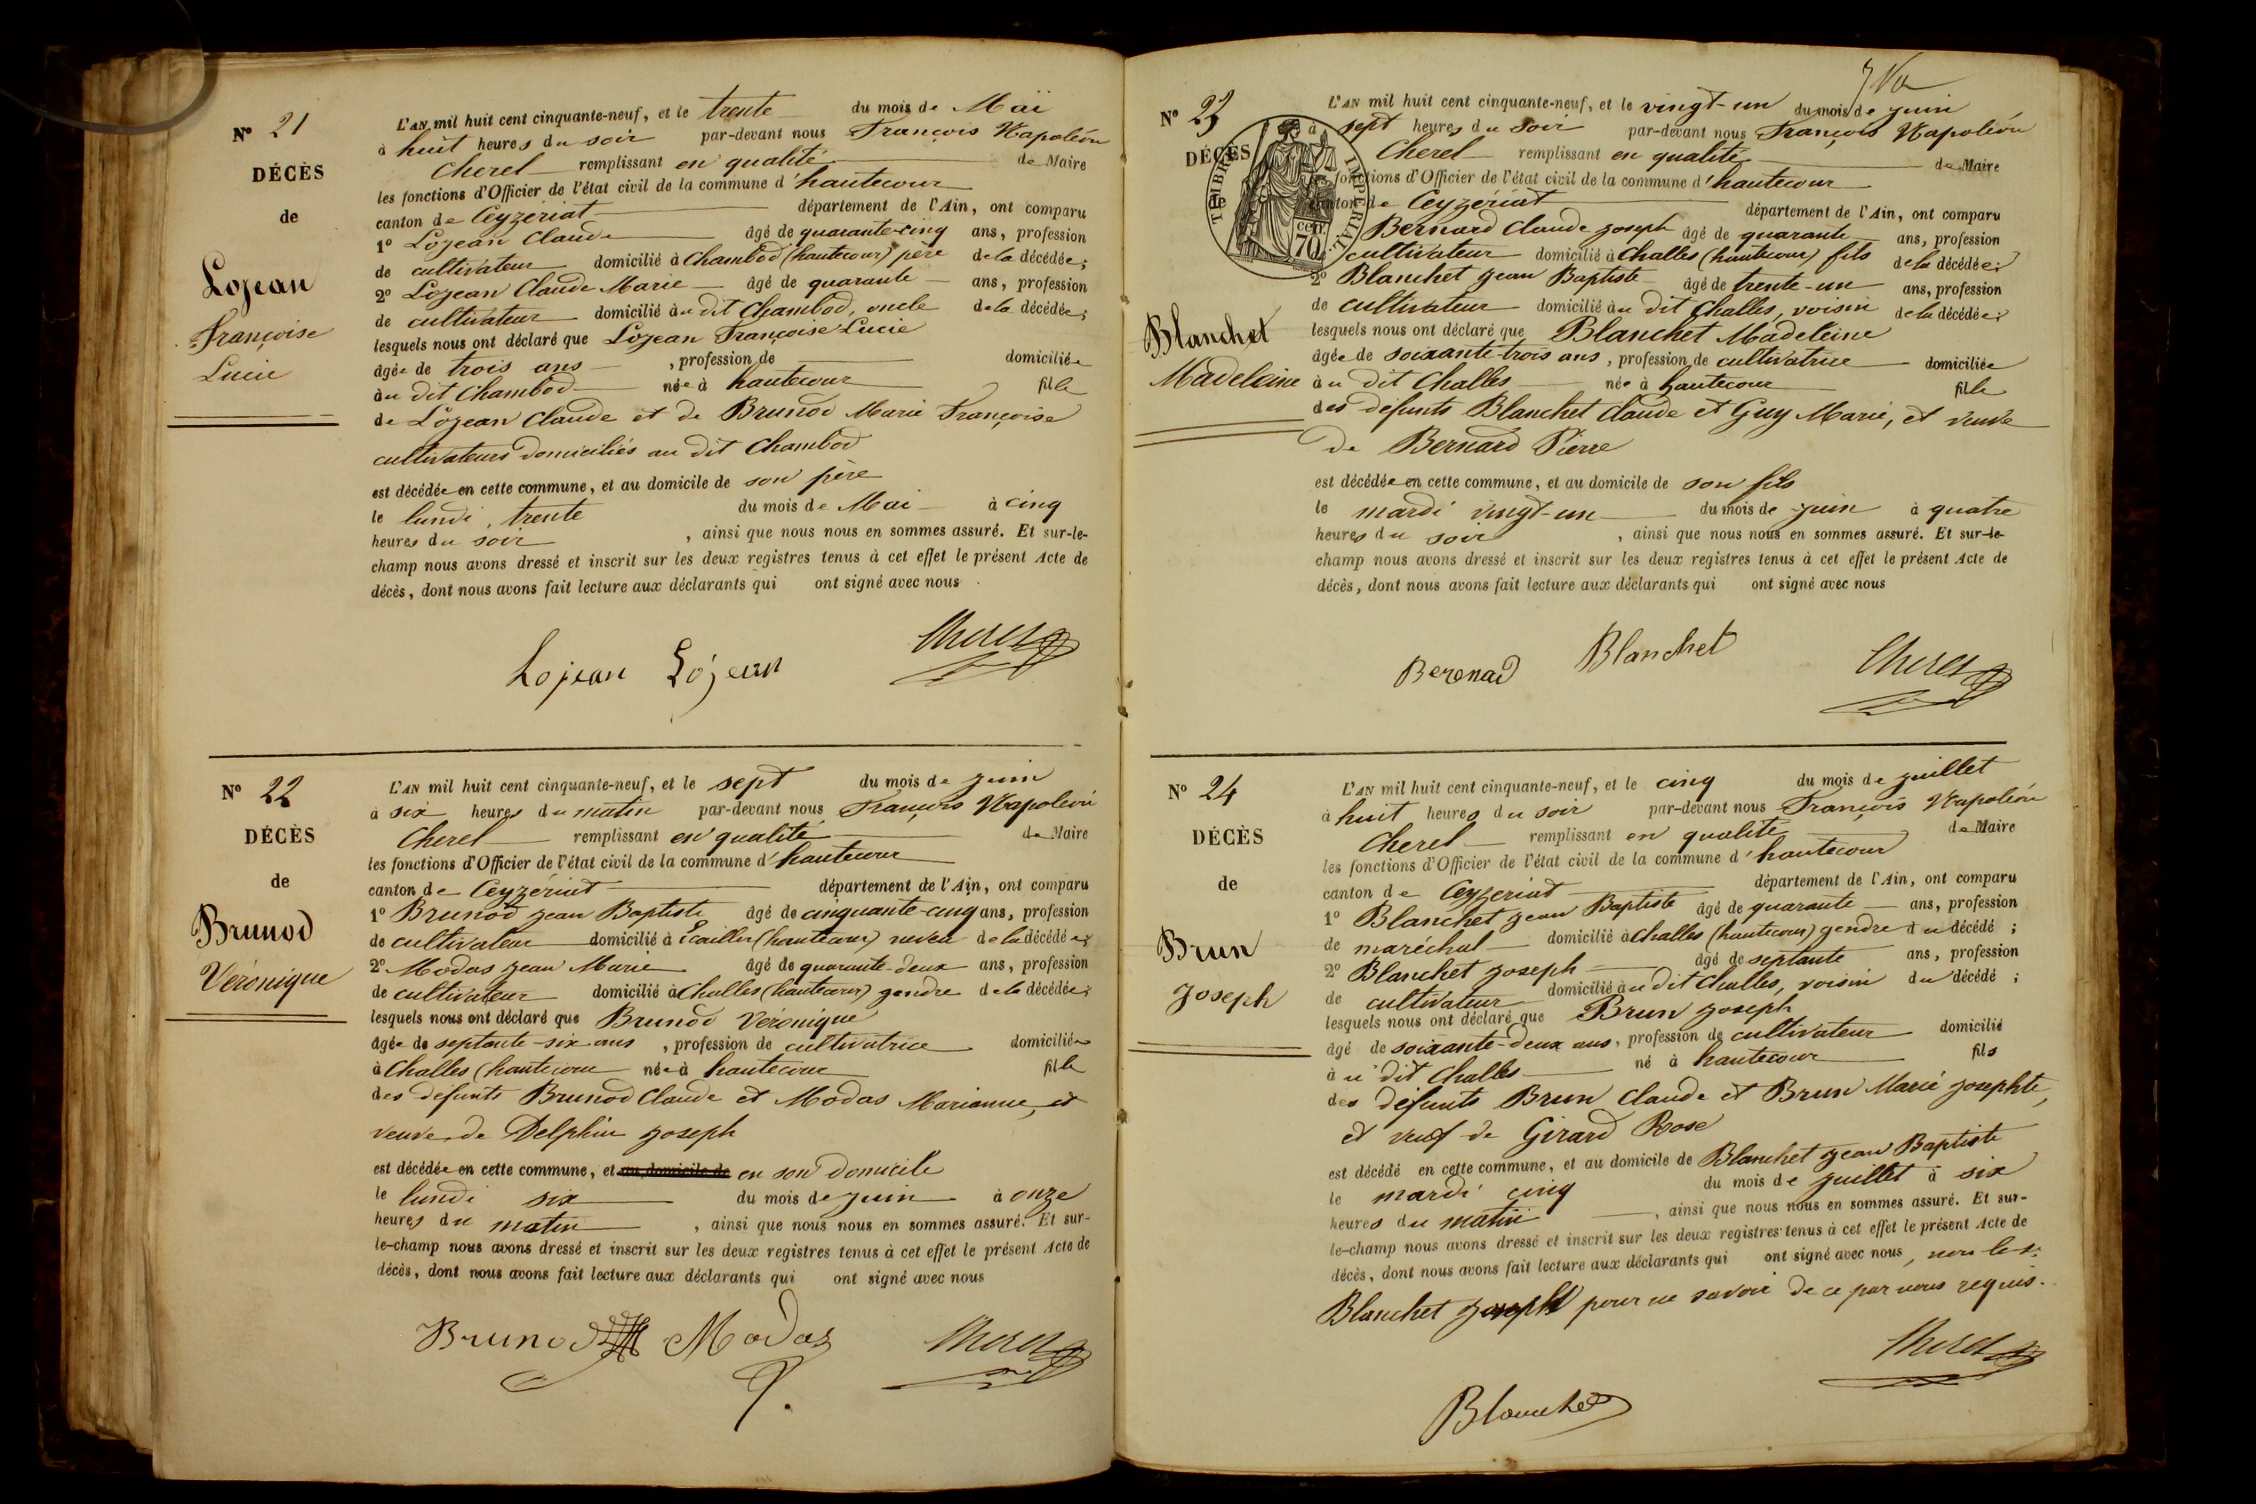 N° 21
DÉCÈS
de
Lojean
Françoise
Lucie
L'AN mil huit cent cinquante-neuf, et le trente du mois de Mai
à huit heures du soir par-devant nous François Napoléon
Cherel remplissant en qualité de Maire
les fonctions d'Officier de l'état civil de la commune d'hautecour
canton de Ceyzériat département de l'Ain, ont comparu
1° Lojean Claude âgé de quarante-cinq ans, profession
de cultivateur domicilié à Chambod (hautecour) père de la décédée;
2° Lojean Claude Marie âgé de quarante ans, profession
de cultivateur domicilié au dit Chambod, oncle de la décédée;
lesquels nous ont déclaré que Lojean Françoise Lucie
âgée de trois ans, profession de domiciliée
au dit Chambod née à hautecour fille
de Lojean Claude et de Brunod Marie Françoise
cultivateurs domiciliés au dit Chambod
est décédée en cette commune, et au domicile de son père
le lundi, trente du mois de Mai à cinq
heures du soir, ainsi que nous nous en sommes assuré. Et sur-le-
champ nous avons dressé et inscrit sur les deux registres tenus à cet effet le présent Acte de
décès, dont nous avons fait lecture aux déclarants qui ont signé avec nous
Lojean Lojean Cherel
N° 22
DÉCÈS
de
Brunod
Véronique
L'AN mil huit cent cinquante-neuf, et le sept du mois de juin
à six heures du matin par-devant nous François Napoléon
Cherel remplissant en qualité de Maire
les fonctions d'Officier de l'état civil de la commune d'hautecour
canton de Ceyzériat département de l'Ain, ont comparu
1° Brunod Jean Baptiste âgé de cinquante-cinq ans, profession
de cultivateur domicilié à Ecailles (hautecour) neveu de la décédée;
2° Modas Jean Marie âgé de quarante-deux ans, profession
de cultivateur domicilié à Challes (hautecour) gendre de la décédée;
lesquels nous ont déclaré que Brunod Véronique
âgée de septante-six ans, profession de cultivatrice domiciliée
à Challes (hautecour née à hautecour fille
des défunts Brunod Claude et Modas Marianne, et
veuve de Delphin Joseph
est décédée en cette commune, et au domicile de en son domicile
le lundi six du mois de juin à onze
heures du matin, ainsi que nous nous en sommes assuré. Et sur-
le-champ nous avons dressé et inscrit sur les deux registres tenus à cet effet le présent Acte de
décès, dont nous avons fait lecture aux déclarants qui ont signé avec nous
Brunod Modas Cherel
N° 23
DÉCÈS
de
TIMBRE IMPÉRIAL
CEN.
70
Blanchet
Madeleine
L'AN mil huit cent cinquante-neuf, et le vingt-un du mois de juin
à sept heures du soir par-devant nous François Napoléon
Cherel remplissant en qualité de Maire
fonctions d'Officier de l'état civil de la commune d'hautecour
canton de Ceyzériat département de l'Ain, ont comparu
Bernard Claude Joseph âgé de quarante ans, profession
cultivateur domicilié à Challes (hautecour) fils de la décédée;
2° Blanchet Jean Baptiste âgé de trente-un ans, profession
de cultivateur domicilié au dit Challes, voisin de la décédée;
lesquels nous ont déclaré que Blanchet Madeleine
âgée de soixante-trois ans, profession de cultivatrice domiciliée
au dit Challes née à hautecour fille
des défunts Blanchet Claude et Guy Marie, et veuve
de Bernard Pierre
est décédée en cette commune, et au domicile de son fils
le mardi vingt-un du mois de juin à quatre
heures du soir, ainsi que nous nous en sommes assuré. Et sur-le-
champ nous avons dressé et inscrit sur les deux registres tenus à cet effet le présent Acte de
décès, dont nous avons fait lecture aux déclarants qui ont signé avec nous
Berenad Blanchet Cherel
N° 24
DÉCÈS
de
Brun
Joseph
L'AN mil huit cent cinquante-neuf, et le cinq du mois de juillet
à huit heures du soir par-devant nous François Napoléon
Cherel remplissant en qualité de Maire
les fonctions d'Officier de l'état civil de la commune d'hautecour
canton de Ceyzériat département de l'Ain, ont comparu
1° Blanchet Jean Baptiste âgé de quarante ans, profession
de maréchal domicilié à Challes (hautecour) gendre du décédé;
2° Blanchet Joseph âgé de septante ans, profession
de cultivateur domicilié au dit Challes, voisin du décédé;
lesquels nous ont déclaré que Brun Joseph
âgé de soixante-deux ans, profession de cultivateur domicilié
au dit Challes né à hautecour fils
des défunts Brun Claude et Brun Marie Josephte,
et veuf de Girard Rose
est décédé en cette commune, et au domicile de Blanchet Jean Baptiste
le mardi cinq du mois de juillet à six
heures du matin, ainsi que nous nous en sommes assuré. Et sur-
le-champ nous avons dressé et inscrit sur les deux registres tenus à cet effet le présent Acte de
décès, dont nous avons fait lecture aux déclarants qui ont signé avec nous, non le sr
Blanchet Joseph pour ne savoir de ce par nous requis.
Cherel
Blanchet